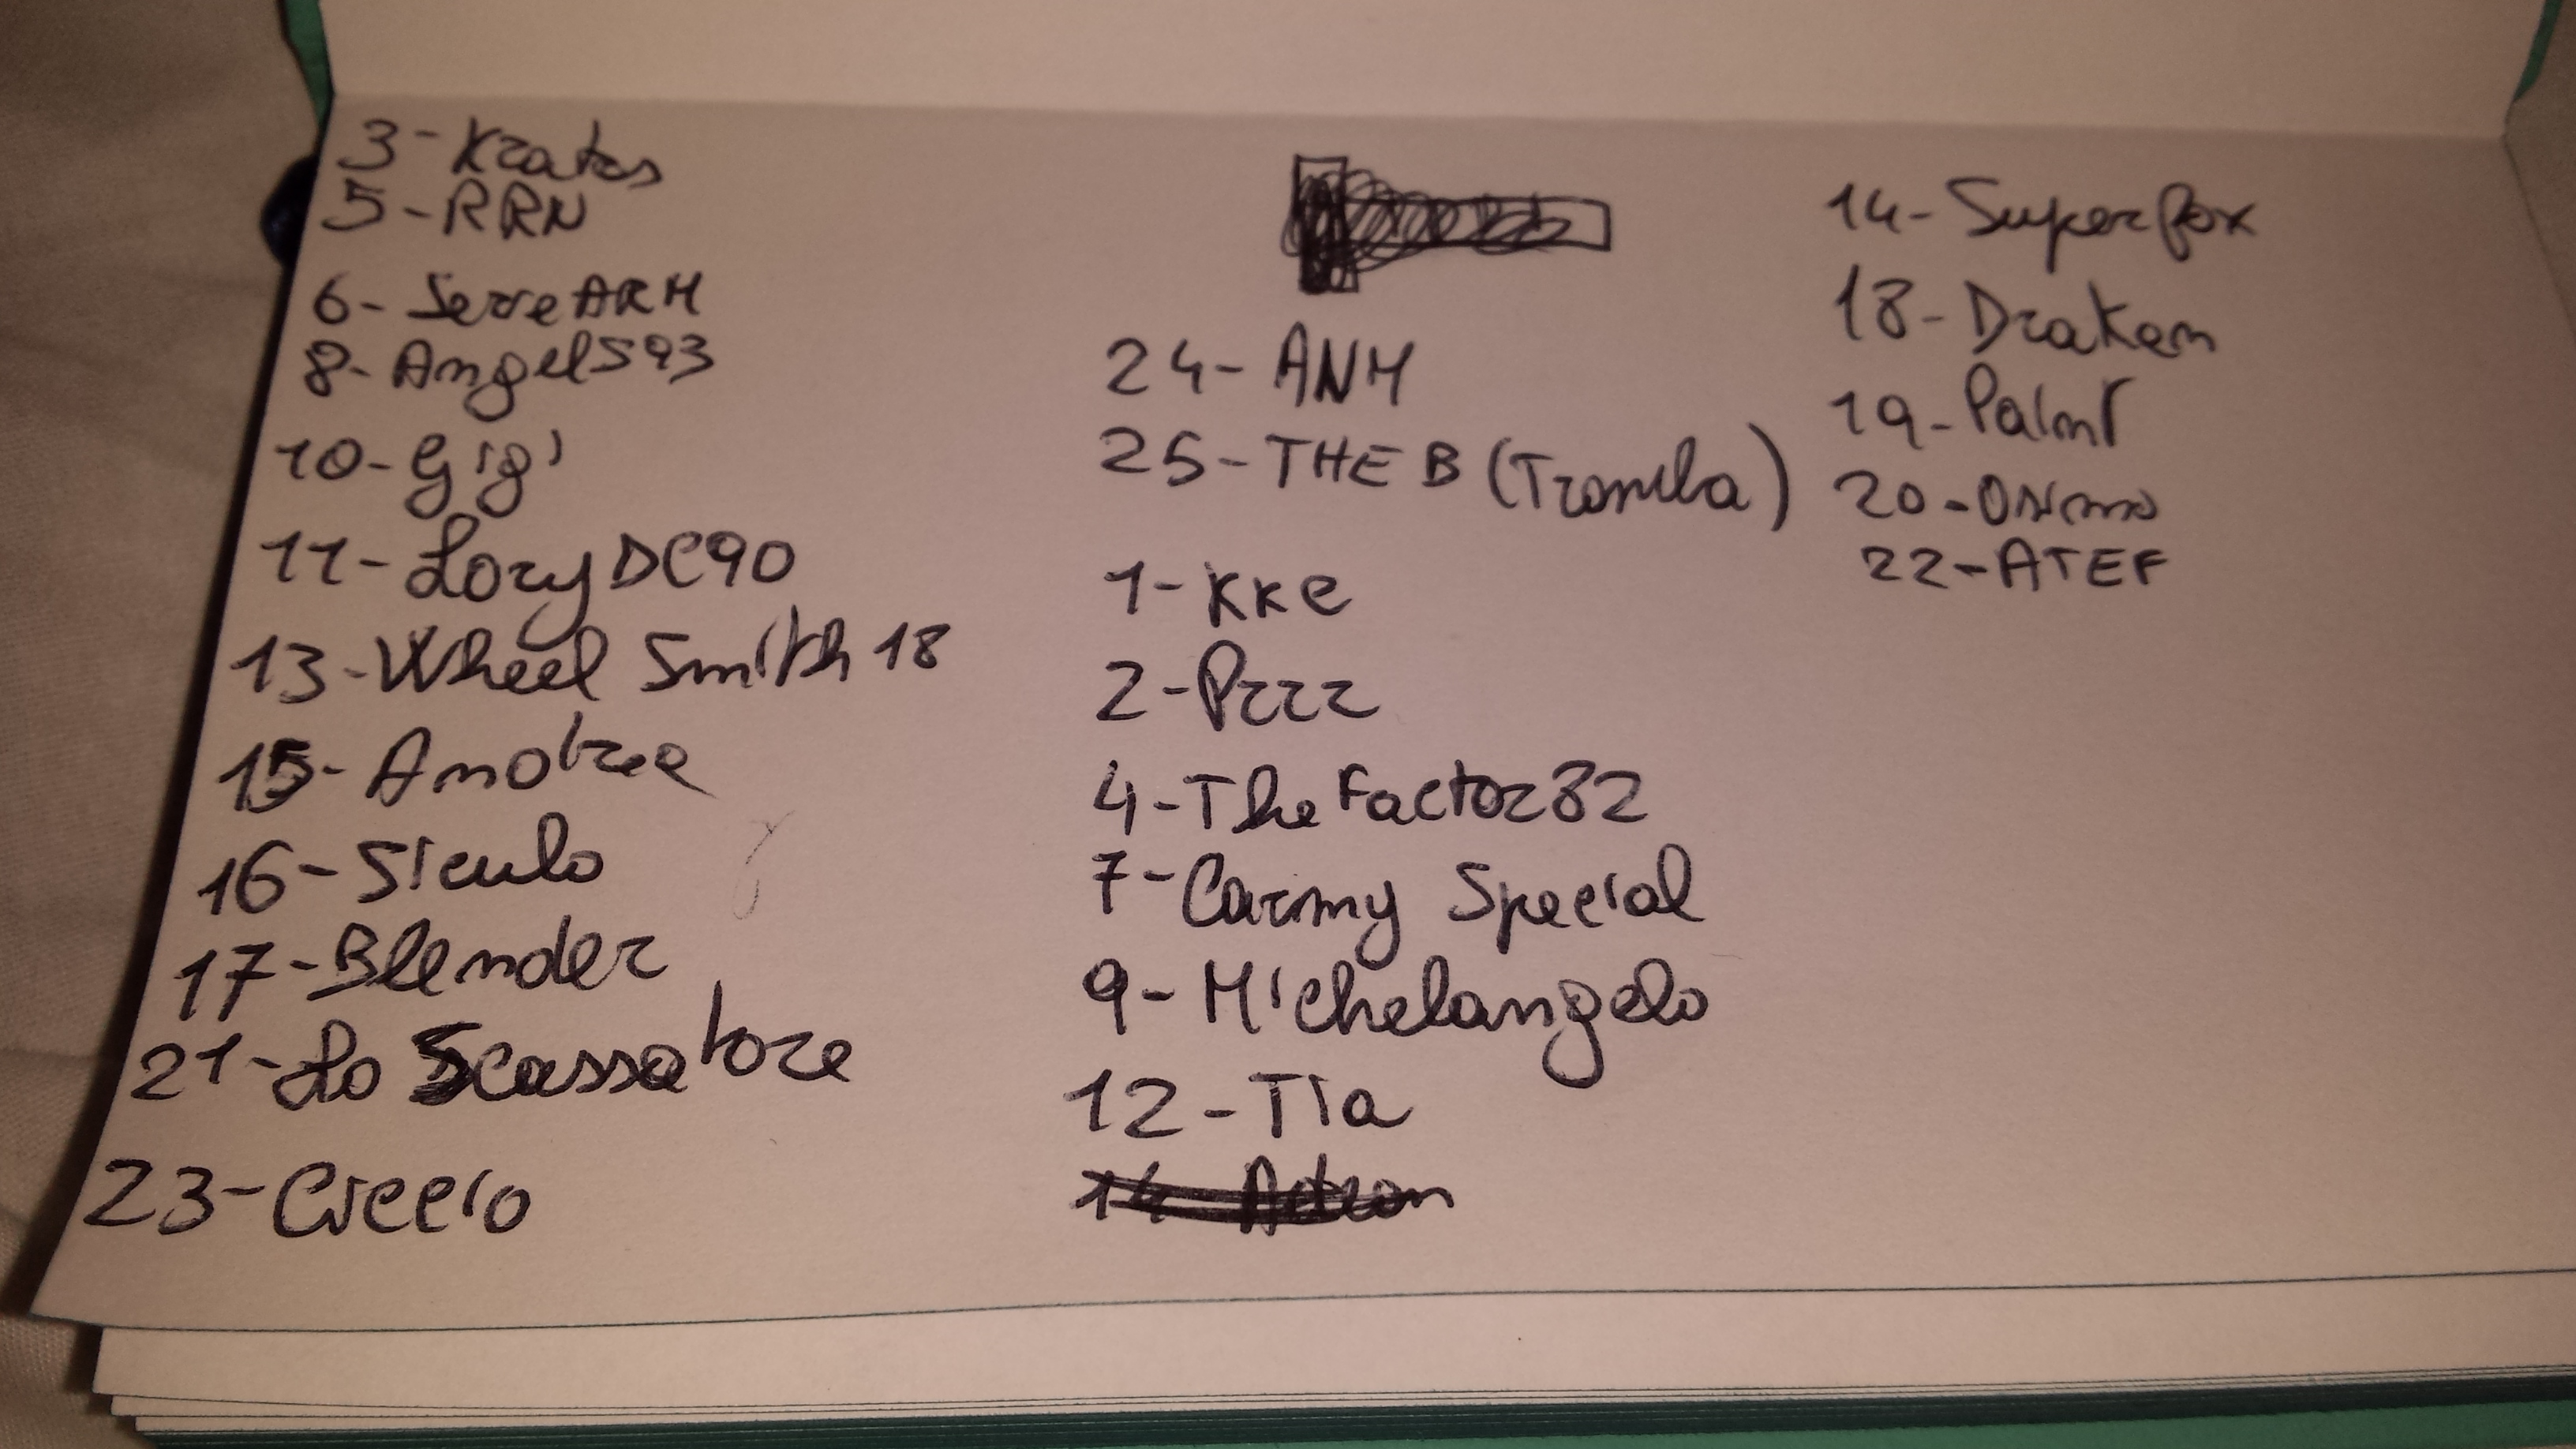 3-Kratos
5-RRN
6-SerreARM
8-AngelS93
10-Gigi
11-LoryDC90
13-Wheel Smith 18
15-Andrea
16-Siculo
17-Blender
21-Lo Scassatore
23-Ciccio
24-ANM
25-THE B (Tromba)
1-KKe
2-Przz
4-The Factor82
7-Carmy Special
9-Michelangelo
12-Tia
14-Superfox
18-Draken
19-Palmr
20-
22-ATEF